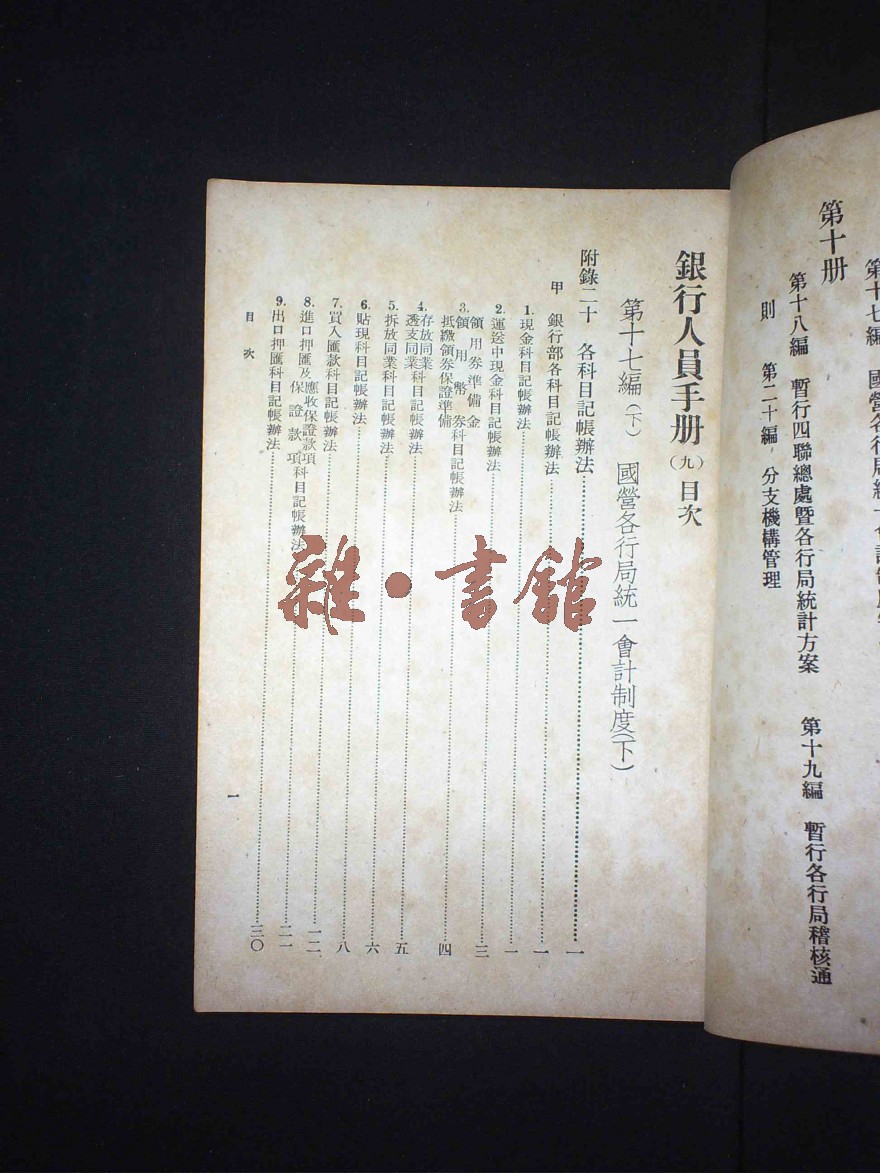 第十七編 國營各行局統一會計制度
第十册
第十八編 暫行四聯總處暨各行局統計方案 第十九編 暫行各行局稽核通
則 第二十編 分支機構管理
銀行人員手册（九）目次
第十七編（下） 國營各行局統一會計制度（下）
附錄二十 各科目記帳辦法……一
甲 銀行部各科目記帳辦法……一
1. 現金科目記帳辦法……一
2. 運送中現金科目記帳辦法……三
3. 領用券準備金 領用幣券科目記帳辦法 抵繳領券保證準備……四
4. 存放同業 透支同業科目記帳辦法……五
5. 拆放同業科目記帳辦法……六
6. 貼現科目記帳辦法……八
7. 買入匯款科目記帳辦法……一二
8. 進口押匯及應收保證款項 保證款項科目記帳辦法……二一
9. 出口押匯科目記帳辦法……三〇
目次
一
雜·書館